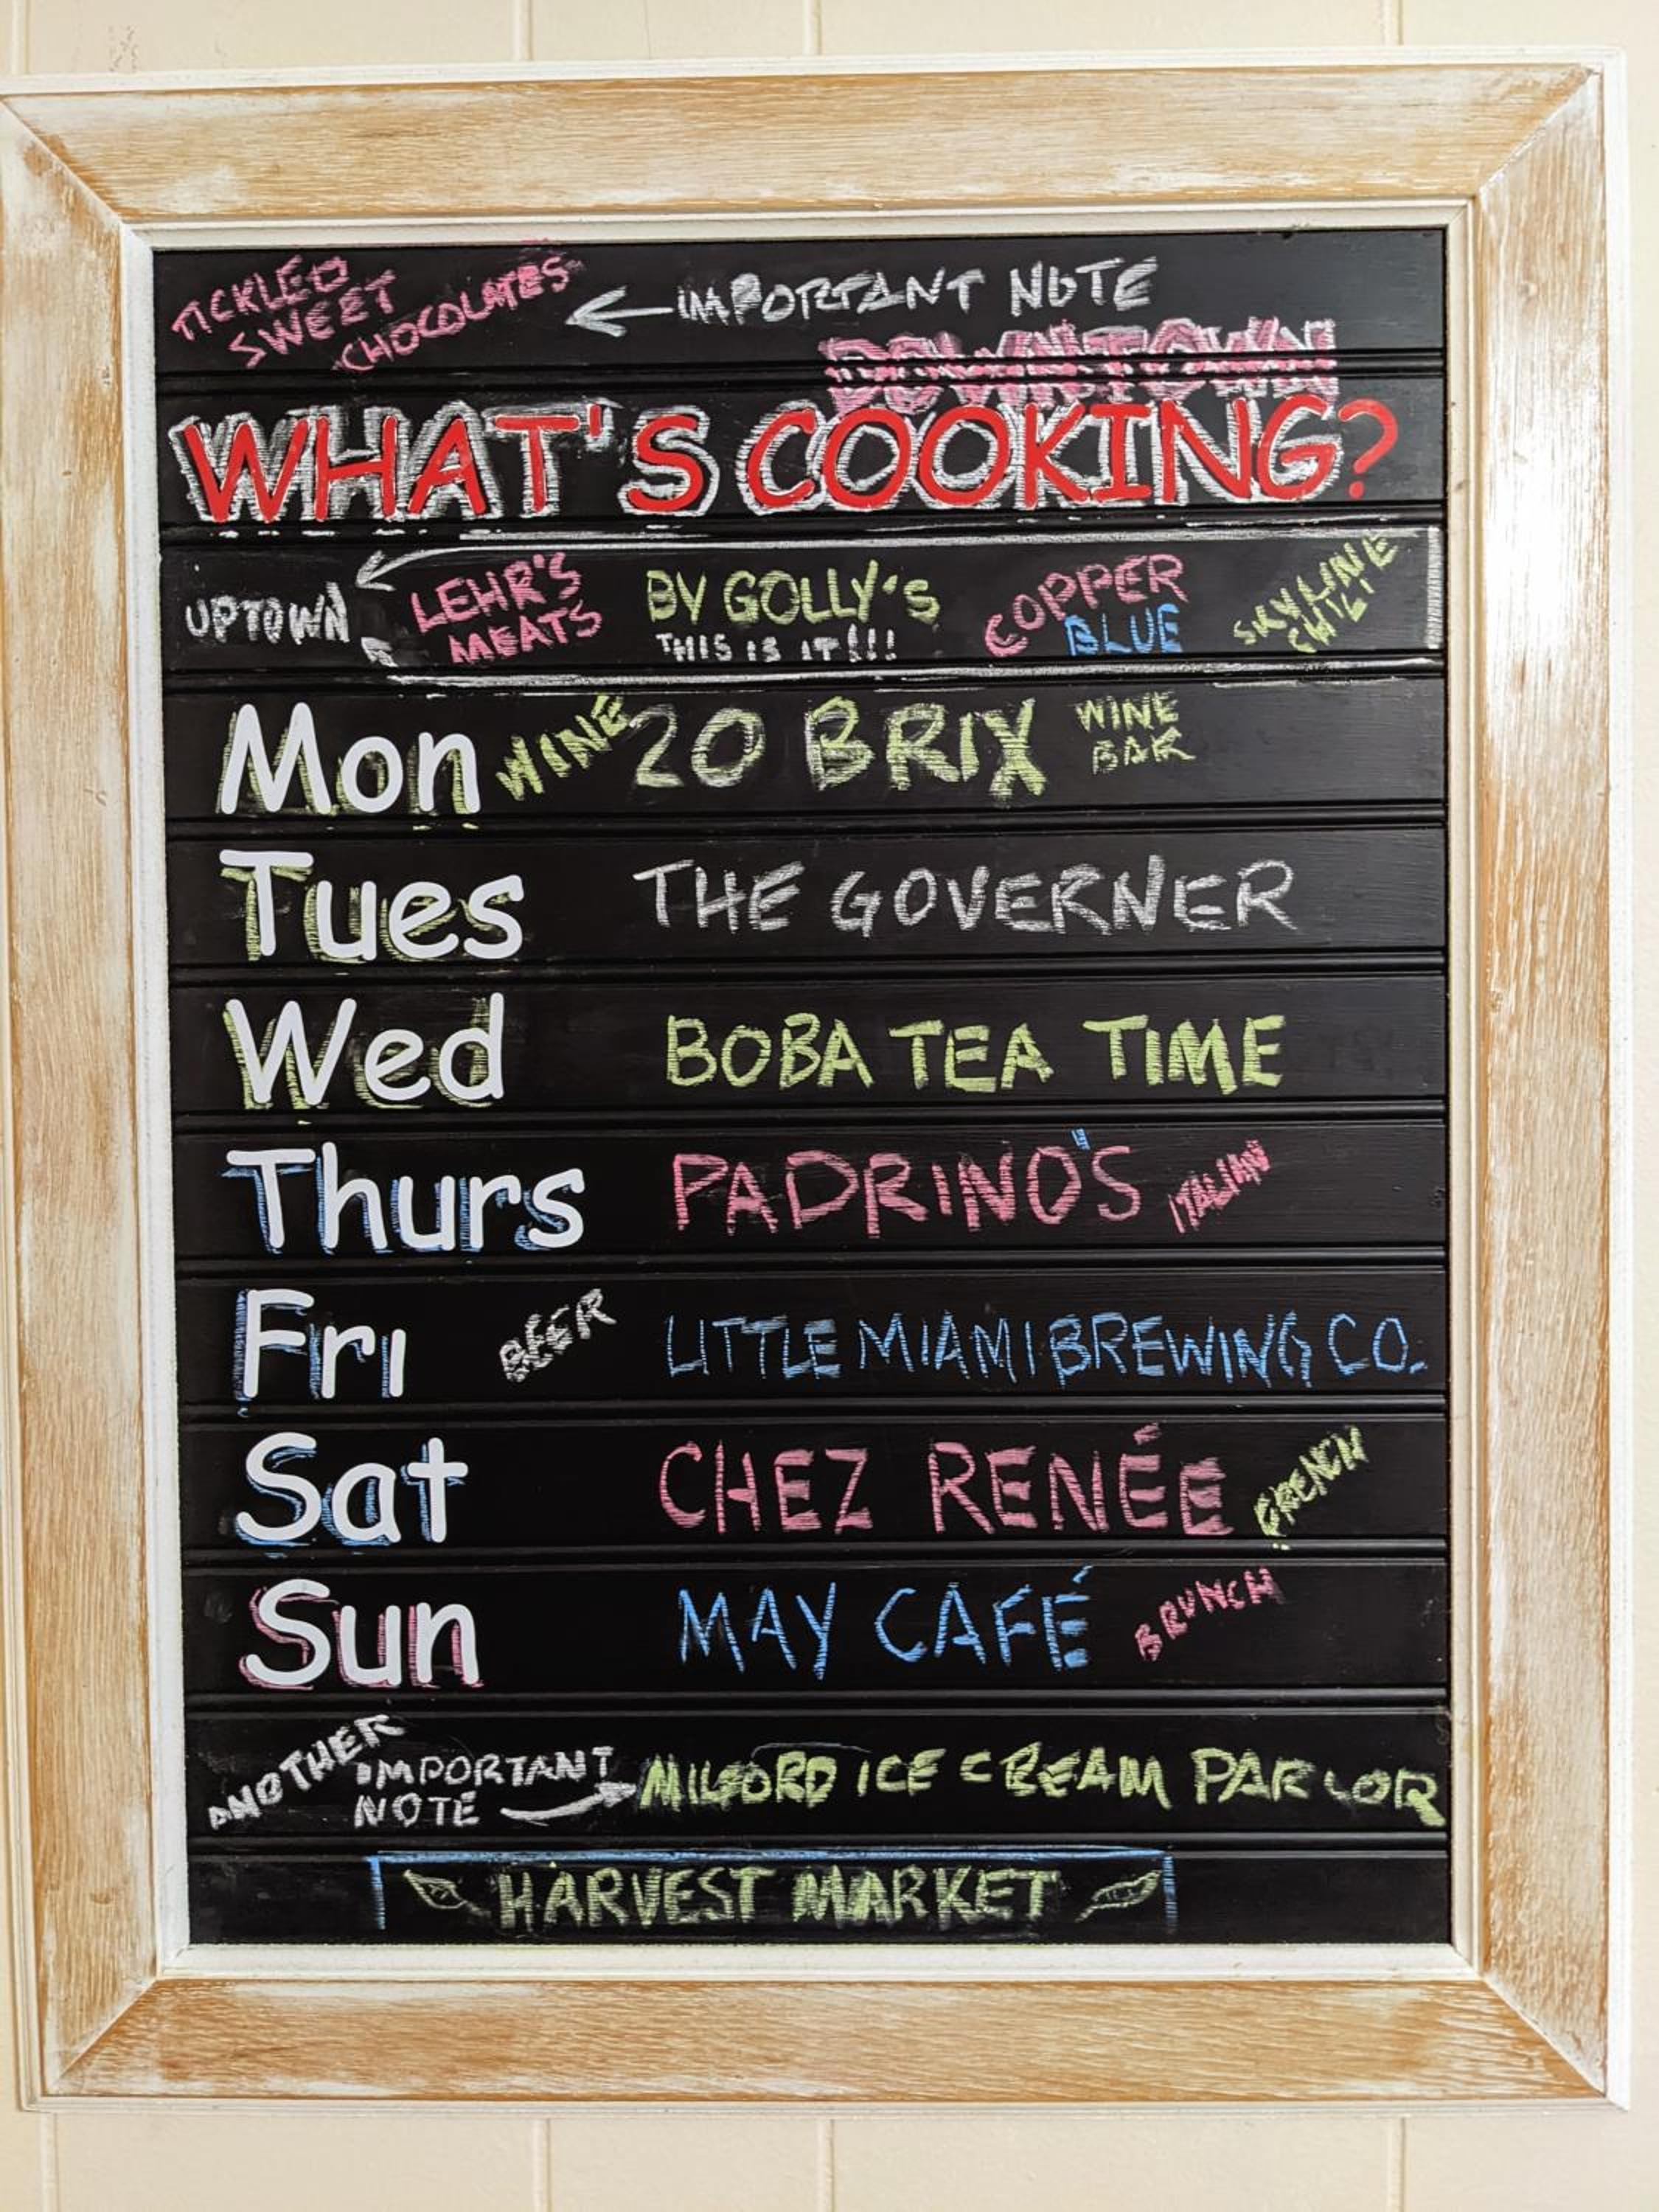 TICKLED
SWEET
CHOCOLATES
IMPORTANT NOTE
DOWNTOWN
WHAT'S COOKING?
UPTOWN
LEHR'S
MEATS
BY GOLLY'S
THIS IS IT!!!
COPPER
BLUE
SKYLINE
CHILI
Mon WINE 20 BRIX WINE
BAR
Tues THE GOVERNER
Wed BOBA TEA TIME
Thurs PADRINO'S ITALIAN
Fri BEER LITTLE MIAMI BREWING CO.
Sat CHEZ RENÉE FRENCH
Sun MAY CAFÉ BRUNCH
ANOTHER
IMPORTANT
NOTE
MILFORD ICE CREAM PARLOR
HARVEST MARKET